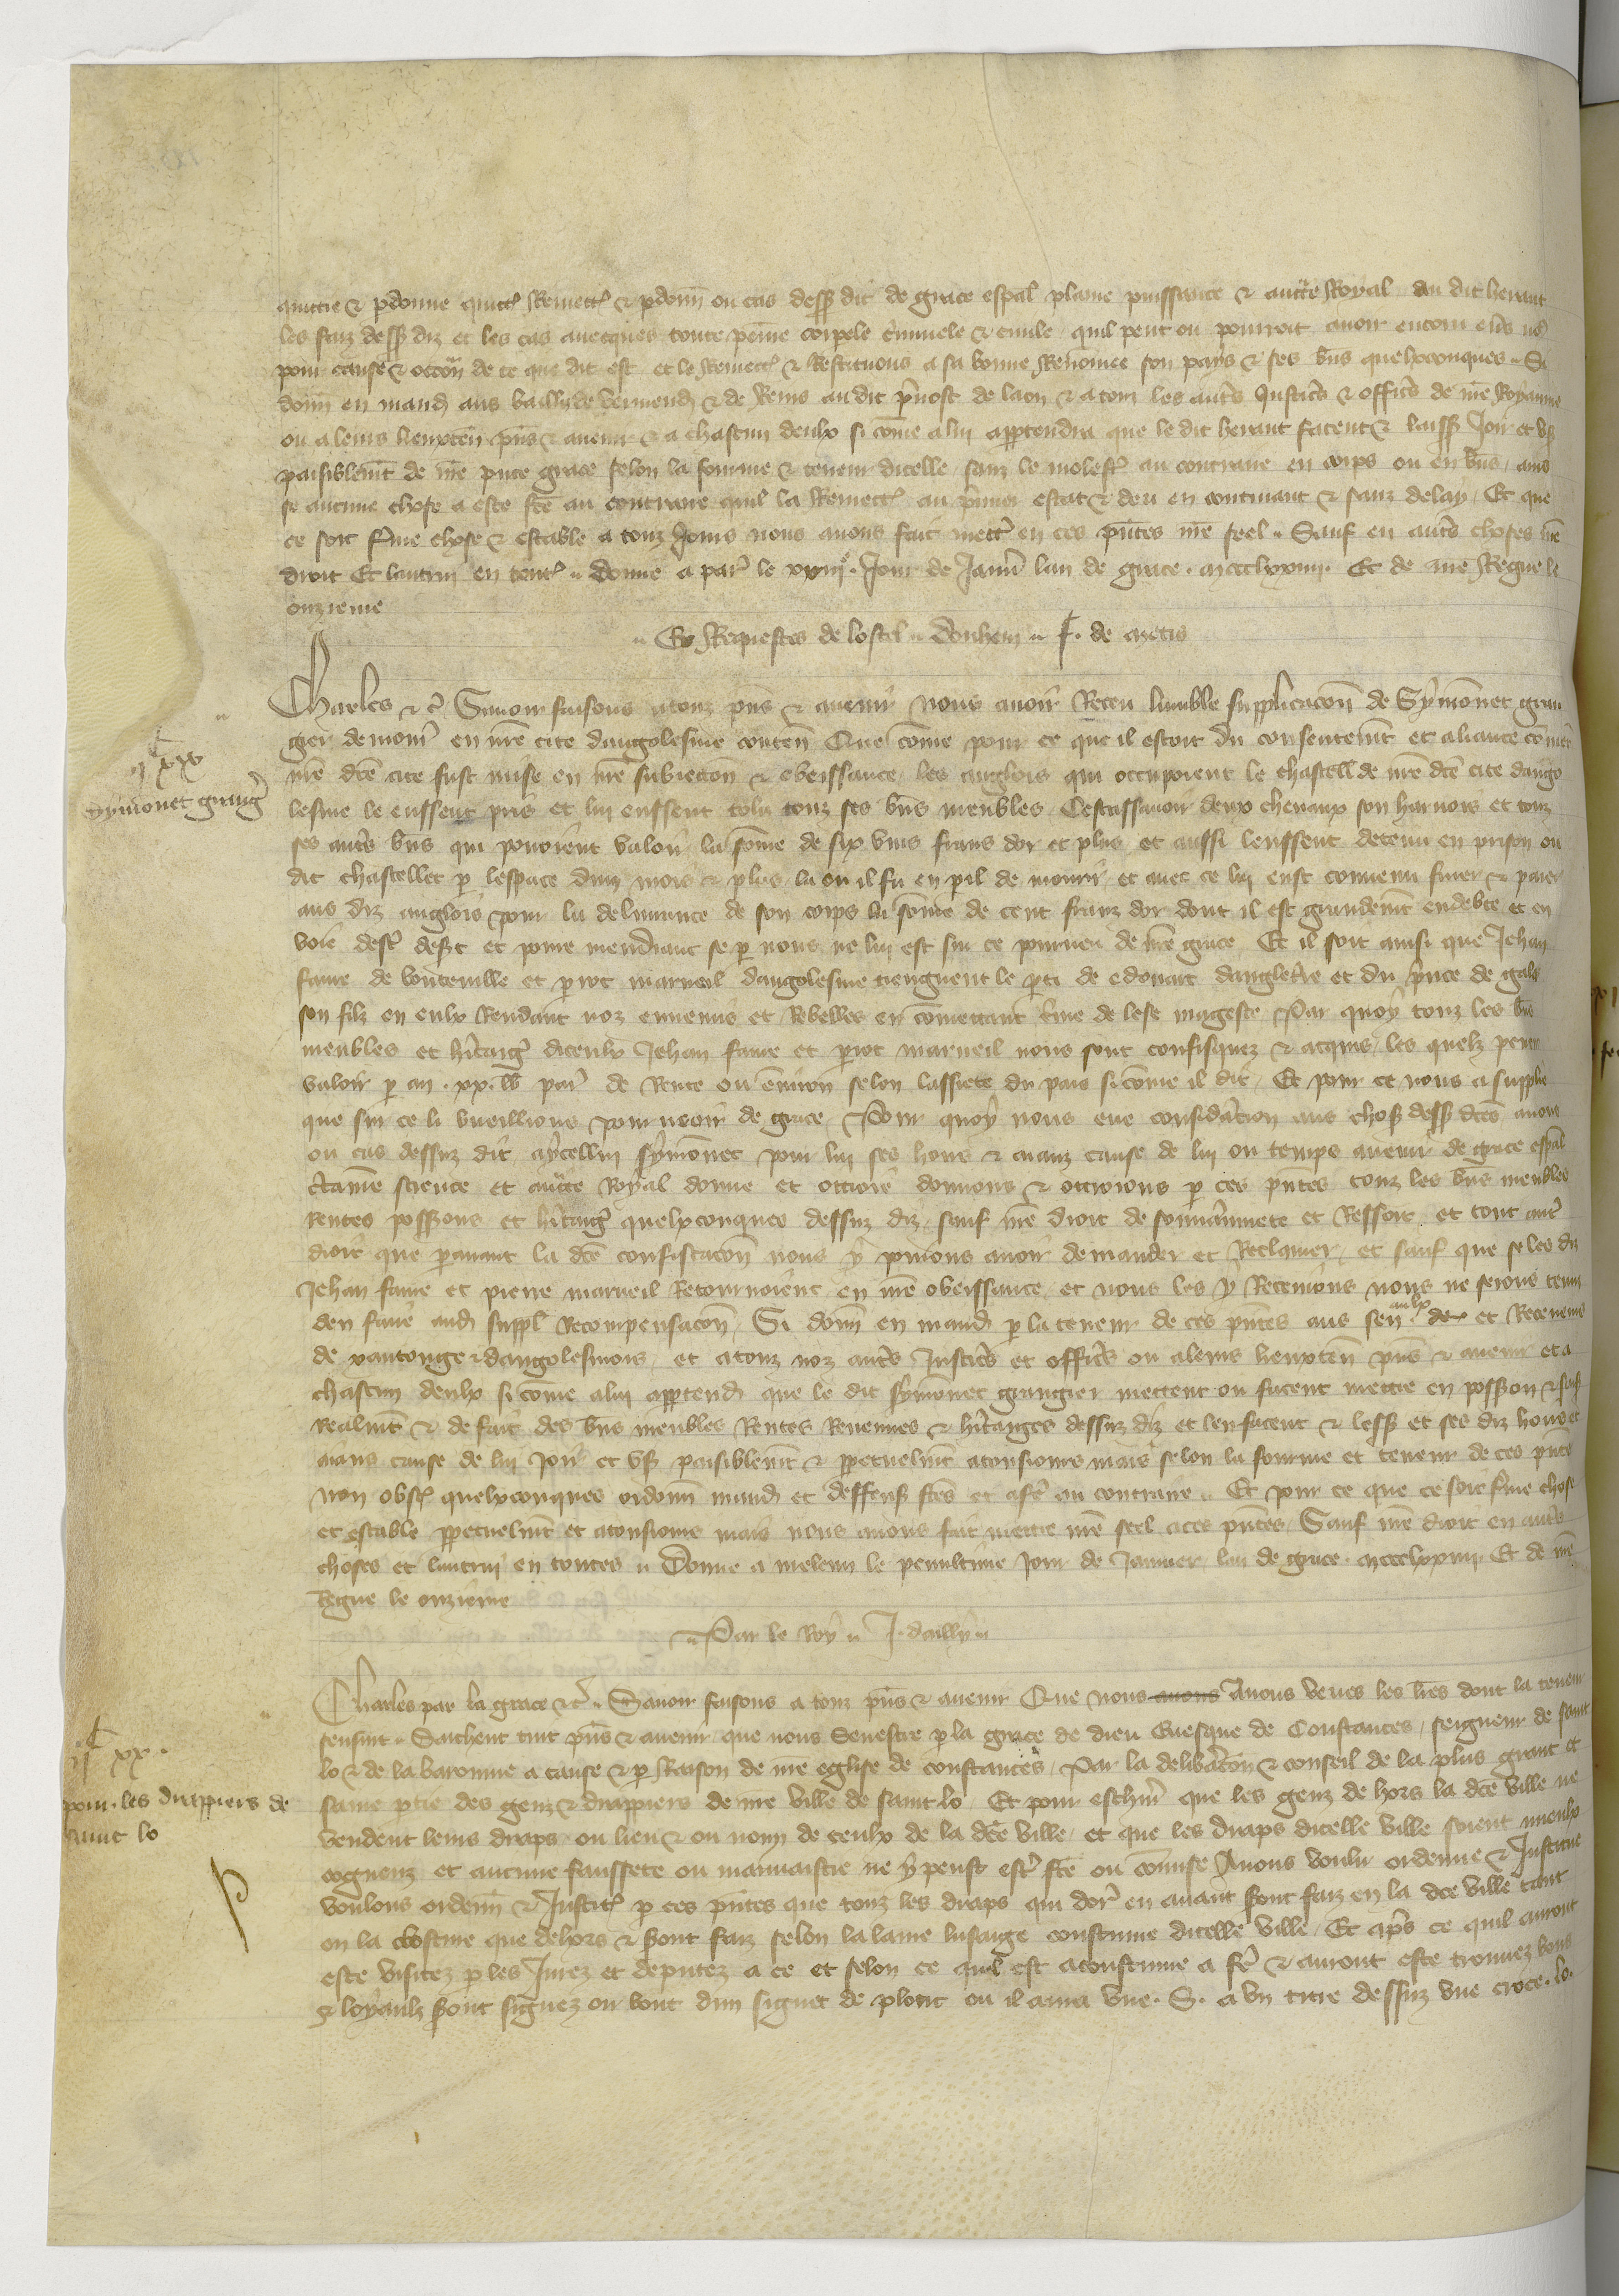 quictie & pdonne quictͤ Remectͤ & pdonn̄ ou cas dess9 dit de grace espal plaine puissance & auctͤe Royal au dit herant
les faiz dess9 diz et les cas auecques toute peine corpele c̃minele & ciuile quil peut ou pourroit auoir encoru en9s no9
pour cause & occõn de ce que dit est et le Remectͤ & Restituons a sa bonne Renomee son pays & ses bn̄s quelxconques ,, Si
donn̄ en mand aus bailliz de vermend & de Reins au dit p̃uost de laon & a touz les aut̃s Justic̃s & offic̃s de nr̄e Royaume
ou a leurs lieuxten̄ pn̄s & auenir & a chascun deulx si com̄e a lui appartendra que le dit herant facent & laiss9 Joir et vs9
paisiblem̄t de nr̄e pn̄te grace selon la fourme & teneur dicelle sanz le molestͤ au contraire en corps ou en bn̄s / ains
se aucune chose a este fc̄e au contraire quil la Remectͤ au p̃mier estat & deu en continant & sanz delay / Et que
ce soit ferme chose & estable a touz Jours nous auons fait mectͤ en ces pn̄tes nr̄e seel ,, Sauf en aut̃s choses nr̄e
droit Et lautrui en toutͤ ,, donne a par̃ le xxiiij⁰ · Jour de Januͥ lan de grace · mccclxxiiij · Et de nr̄e Regne le
onzieme
,, Es Requestes de lostel ,, Douhem ,, f · de metis
Charles &c̃ Sauoir faisons a touz pn̄s & auenir nous auoir Receu lumble supplicacõn de Symonnet gran
gier demour̃ en nr̄e cite dangolesme conten̄ Que com̄e pour ce que il estoit du consentem̄t et aliance com̄ent
nr̄e dc̄e cite fust mise en nr̄e subieccõn & obeissance / les anglois qui occupoient le chastell de nr̄e dc̄e cite dango
lesme le eussent pris et lui eussent tolu touz ses bn̄s meubles / Cestassauoir deux cheuaux son harnois et touz
ses aut̃s bn̄s qui pouoient valoir la som̄e de six vins frans dor et plus et aussi leussent detenu en prison ou
dit chastellet p lespace dun mois & plus la ou il fu en pil de mourir et auec ce lui eust conuenu finer & paier
aus diz anglois pour la deliurance de son corps la som̄e de cent franz dor dont il est grandem̄t endebte et en
voie destͤ desert et poure mendiant se p nous ne lui est sur ce pourueu de nr̄e grace Et il soit ainsi que Jehan
faure de bouteuille et piot marueil dangolesme tiengnent le pti de edouart dangleterre et du prince de gales
son filz en eulx Rendant noz ennemis et Rebelles en com̄ettant c̃me de lese mageste Par quoy touz les bn̄s
meubles et heritaiges diceulx Jehan faure et piot marueil nous sont confisquez & acquis / les quelz peuent
valoir p an · xx · lb par̃ de Rente ou enuiron selon lassiete du pais si com̄e il dit / Et pour ce nous a supplie
que sur ce li vueillions pourueoir de grace / Pour quoy nous eue consideracion aus chos9 dess9 dc̄es auons
ou cas dessuz dit aycellui symonnet pour lui ses hoirs & aianz cause de lui ou temps auenir de grace espal
c̃taine science et auctͤe Royal donne et ottroie donnons & ottroions p ces pn̄tes touz les bn̄s meubles
Rentes poss9ions et heritaiges quelxconques dessuz diz / sauf nr̄e droit de souuerainnete et Ressort et tout aut̃
droit que parauant la dc̄e confiscacõn nous y pouions auoir demander et Reclamer / et sauf que se les diz
Jehan faure et pierre marueil Retournoient en nr̄e obeissance et nous les y Receuions nous ne serons tenuz
den faire aud suppl̄ Recompensacõn / Si donn̄ en mand p la teneur de ces pn̄tes aus sen aulx de et Receueurs
de xantonge & dangolesmois / et a touz noz aut̃s Justic̃s et offic̃s ou a leurs lieuxten̄ pn̄s & auenir et a
chascun deulx si com̄e a lui appartend que le dit symonet grangier mettent ou facent mettre en poss9ion & sais9
realm̄t & de fait des bn̄s meubles Rentes Reuenues & heritaiges dessuz diz et len facent & less9 et ses diz hoirs et
aians cause de lui Joir et vs9 paisiblem̄t & perpetuelm̄t a tousiours mais selon la fourme et teneur de ces pn̄tes
non obstͤ quelxconques ordonn̄ mand et deffens9 fc̄es et a fͤe au contraire ,, Et pour ce que ce soit ferme chose
et estable perpetuelm̄t et a tousiours mais nous auons fait mettre nr̄e seel a ces pn̄tes / Sauf nr̄e droit en aut̃s
choses et lautrui en toutes ,, Donne a meleun le penultime Jour de Januier lan de grace · mccclxxiiij · Et de nr̄e
Regne le onzieme
,, Par le Roy ,, J · dailly ,,
Charles par la grace &c̃ ,, Sauoir faisons a touz pn̄s & auenir Que nous auons Auons veues les lr̄es dont la teneur
sensuit ,, Saichent tuit pn̄s & auenir que nous Seuestre p la grace de dieu Euesque de Constances / seigneur de saint
lo & de la baronnie a cause & p Raison de nr̄e eglise de constances / Par la deliberacõn & conseil de la plus grant et
saine ptie des genz & drappiers de nr̄e ville de saint lo Et pour eschiuer que les genz de hors la dc̄e ville ne
vendent leurs draps ou lieu & ou nom de ceulx de la dc̄e ville / et que les draps dicelle ville soient mieulx
cogneuz et aucune faussete ou mauuaistie ne y peust estͤ fc̄e ou com̄ise Auons voulu ordenne & Justitue
voulons ordenn̄ & Justitͤ p ces pn̄tes que touz les draps qui dor̃ en auant seront faiz en la dc̄e ville tant
en la closture que dehors & seront faiz selon la laine lusaige coustume dicelle ville / Et apr̃s ce quil auront
este visitez p les Jurez et deputez a ce et selon ce quil est acoustume a fͤe & auront este trouuez bons
& loyaulz seront signez ou bout dun signet de plonc ou il aura vne · S · a vn titre dessuz vne croce · lo ·
ijͨ xx
Symonet grangͤ
ijͨ xx ·
pour les drappiers de
saint lo